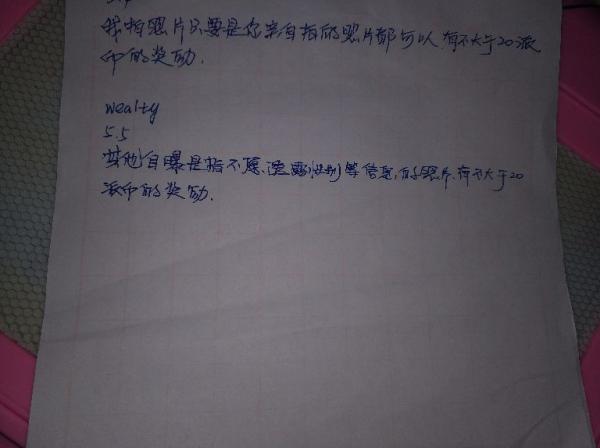 我拍照片只要是你亲自拍的照片都可以 有不大于20派
币的奖励.
wealty
5.5
其他自曝是指不愿透露性别等信息,的照片.有不大于20
派币的奖励.